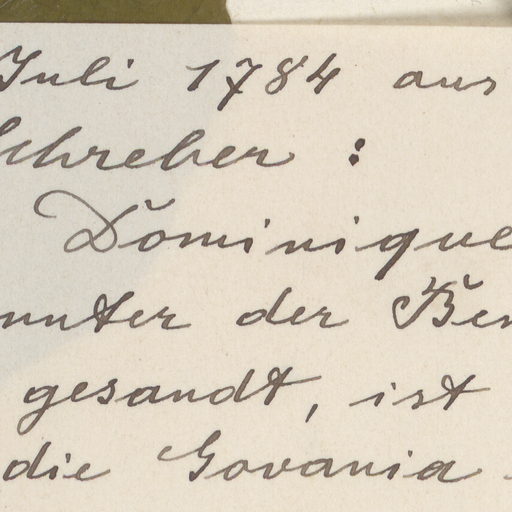 Juli 1784 aus
Schreber :
Dominique
unter der
gesandt, ist
die Govania